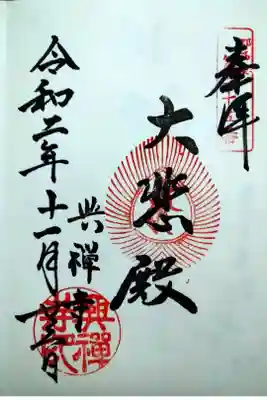 奉拝
大悲殿
興禅寺
令和二年十一月廿三日
興禅寺印